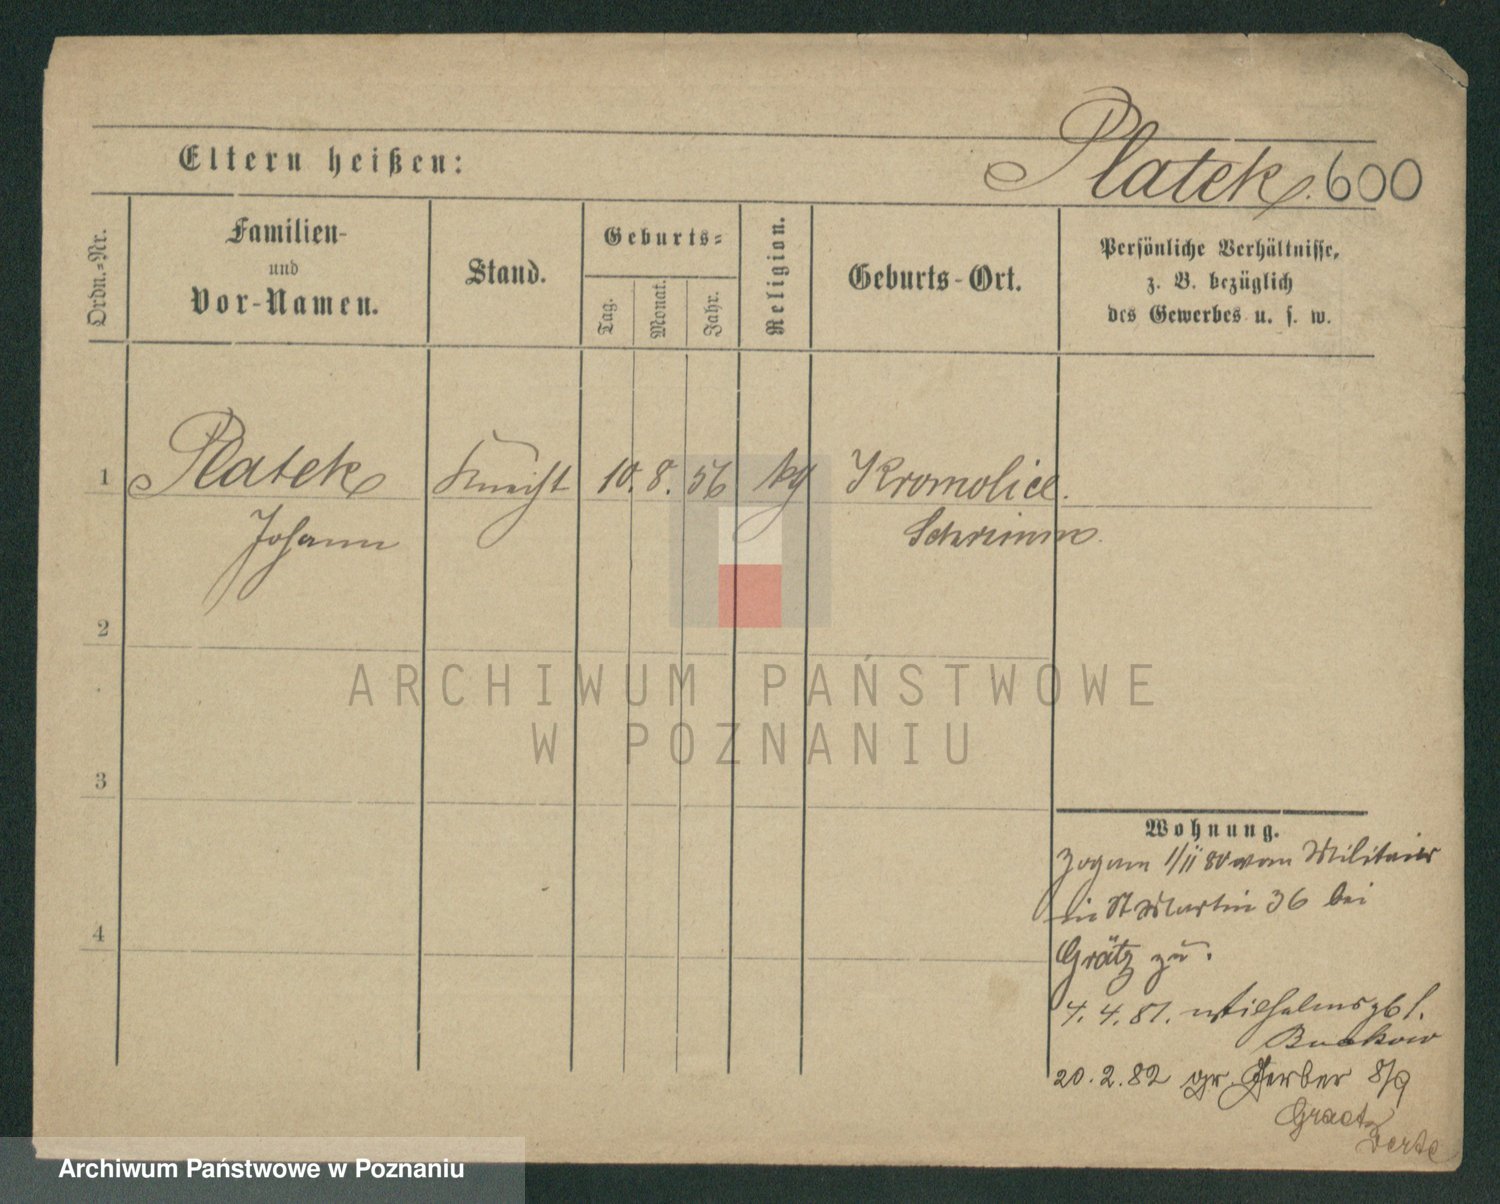 Eltern heißen:
Platek. 600
Ordn.-Nr.
Familien-
und
Vor-Namen.
Stand.
Geburts-
Tag.
Monat.
Jahr.
Religion.
Geburts-Ort.
Persönliche Verhältnisse,
z. B. bezüglich
des Gewerbes u. s. w.
1 Platek Knecht 10. 8. 56 kg Kromolice.
Johann Schrimm
2
ARCHIWUM PAŃSTWOWE
W POZNANIU
3
4
Wohnung.
zog am 1/11 80 vom Militair
in St Martin 36 bei
Grätz zu.
4. 4. 81. Wilhelmspl
Buckow
20. 2. 82 gr. Gerber 8/9
Graetz
Archiwum Państwowe w Poznaniu